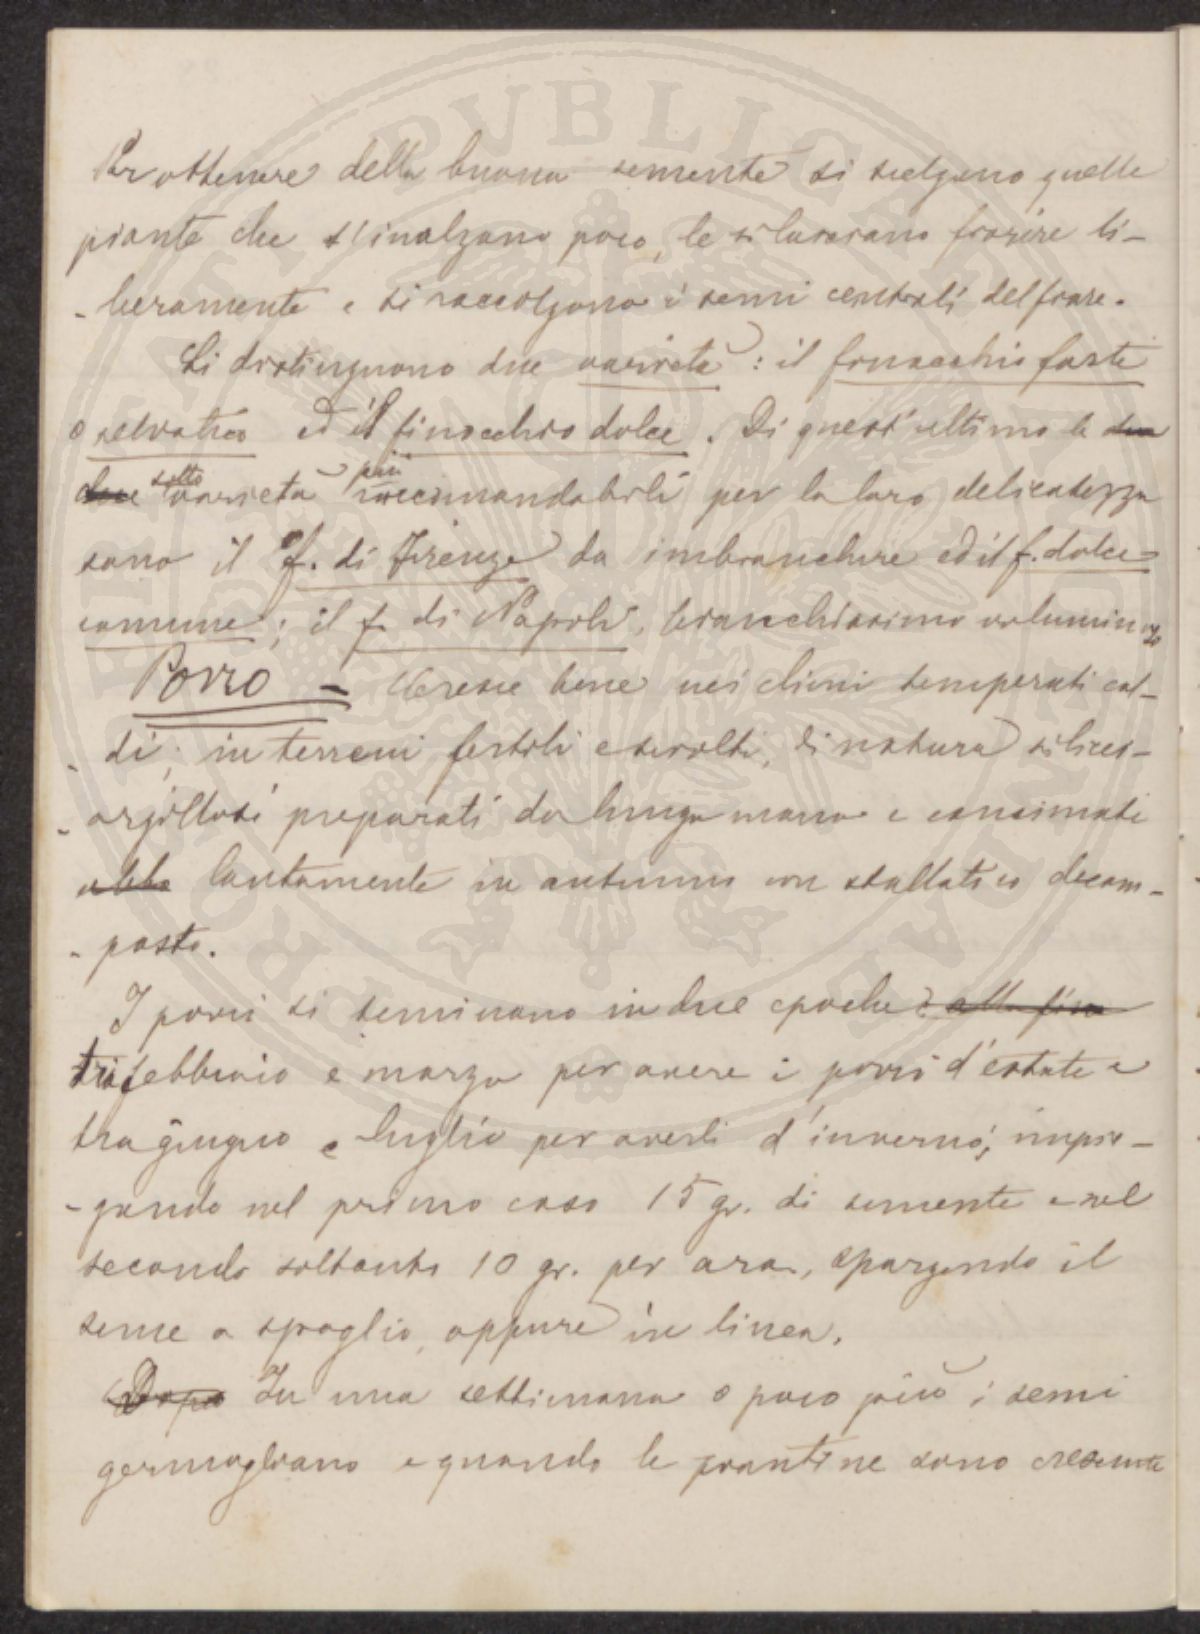 Per ottenere della buona semente si scelgono quelle
piante che s'inalzano poco, le si lasciano fiorire li-
-beramente e si raccolgono i semi centrali del fiore.
Si distinguono due varietà : il finocchio forte
o selvatico ed il finocchio dolce. Di quest'ultimo le due
due sotto varietà più raccomandabili per la loro delicatezza
sono il f. di Firenze da imbianchire ed il f. dolce =
comune; il f. di Napoli, bianchissimo voluminoso
Porro = Cresce bene nei climi temperati cal-
- di; in terreni fertili e sciolti, di natura siliceo-
- argillosi preparati da lunga mano e concimati
lautamente in autunno con stallatico decom-
- posto.
I porri si seminano in due epoche: alla fine
tra febbraio e marzo per avere i porri d'estate e
tra giugno e luglio per averli d'inverno; impie-
- gando nel primo caso 15 gr. di semente e nel
secondo soltanto 10 gr. per ara, spargendo il
seme a spaglio, oppure in linea.
Dopo In una settimana o poco più i semi
germogliano e quando le piantine sono cresciute
PVBLICAE